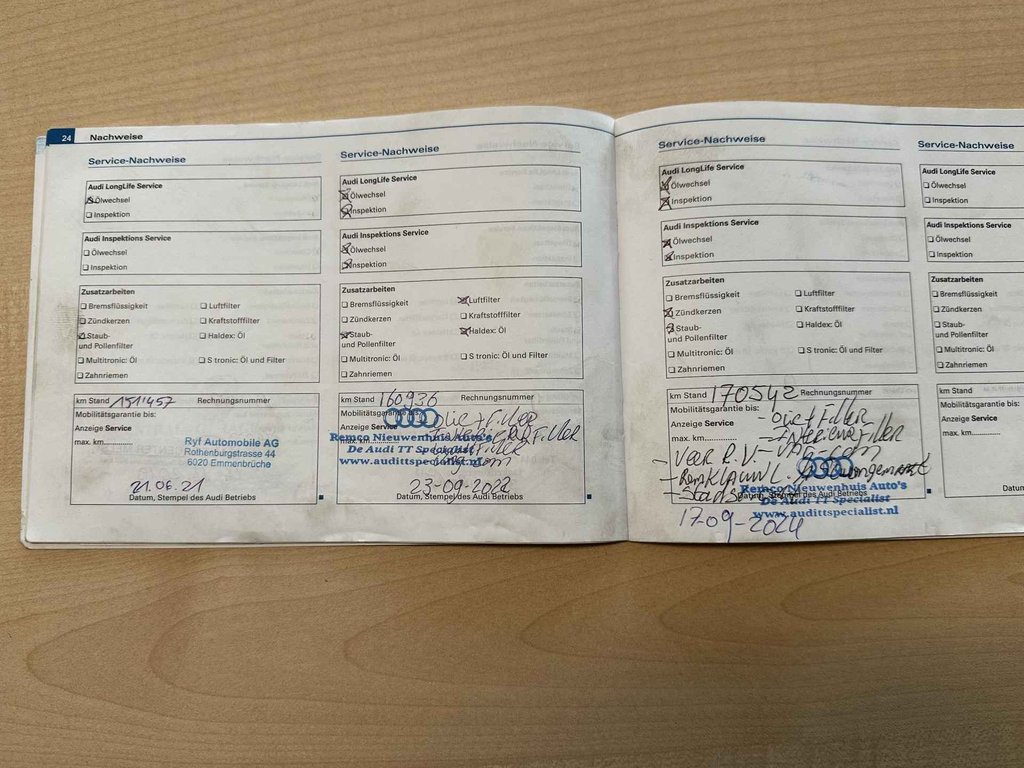 24 Nachweise
Service-Nachweise
Audi LongLife Service
Ölwechsel
Inspektion
Audi Inspektions Service
Ölwechsel
Inspektion
Zusatzarbeiten
Bremsflüssigkeit Luftfilter
Zündkerzen Kraftstofffilter
Staub- Haldex: Öl
und Pollenfilter
Multitronic: Öl S tronic: Öl und Filter
Zahnriemen
km Stand 151'457 Rechnungsnummer
Mobilitätsgarantie bis:
Anzeige Service
max. km
Ryf Automobile AG
Rothenburgstrasse 44
6020 Emmenbrücke
21.06.21
Datum, Stempel des Audi Betriebs
Service-Nachweise
Audi LongLife Service
Ölwechsel
Inspektion
Audi Inspektions Service
Ölwechsel
Inspektion
Zusatzarbeiten
Bremsflüssigkeit Luftfilter
Zündkerzen Kraftstofffilter
Staub- Haldex: Öl
und Pollenfilter
Multitronic: Öl S tronic: Öl und Filter
Zahnriemen
km Stand 160.936 Rechnungsnummer
Mobilitätsgarantie bis:
Olie + Filter
Anzeige Service
max. km
Remco Nieuwenhuis Auto's
De Audi TT Specialist
www.audittspecialist.nl
23-09-2022
Datum, Stempel des Audi Betriebs
Service-Nachweise
Audi LongLife Service
Ölwechsel
Inspektion
Audi Inspektions Service
Ölwechsel
Inspektion
Zusatzarbeiten
Bremsflüssigkeit Luftfilter
Zündkerzen Kraftstofffilter
Staub- Haldex: Öl
und Pollenfilter
Multitronic: Öl S tronic: Öl und Filter
Zahnriemen
km Stand 170542 Rechnungsnummer
Mobilitätsgarantie bis:
- Olie + Filter
Anzeige Service
- Interieurfilter
max. km
- Veer R.V.
Datum, Stempel des Audi Betriebs
Remco Nieuwenhuis Auto's
De Audi TT Specialist
www.audittspecialist.nl
17-09-2024
Service-Nachweise
Audi LongLife
Ölwechsel
Inspektion
Audi Inspektions
Ölwechsel
Inspektion
Zusatzarbeiten
Bremsflüssigkeit
Zündkerzen
Staub-
und Pollenfilter
Multitronic: Öl
Zahnriemen
km Stand
Mobilitätsgarantie bis:
Anzeige Service
max. km
Datum